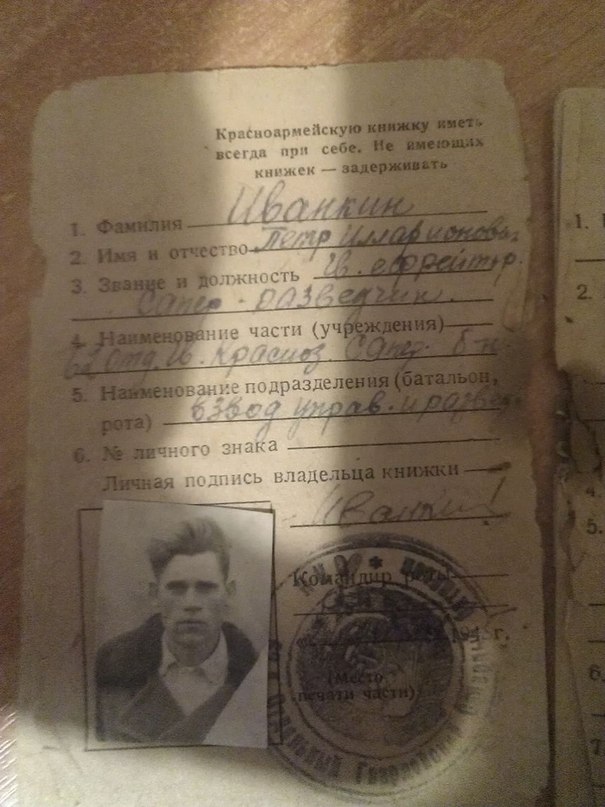 Красноармейскую книжку иметь
всегда при себе. Не имеющих
книжек — задерживать
1. Фамилия Иванкин
2. Имя и отчество Петр Илларионович
3. Звание и должность Гв. ефрейтор.
Сапер-разведчик.
4. Наименование части (учреждения)
62 отд. Гв. Красноз. Сапер. б-н.
5. Наименование подразделения (батальон,
рота) взвод управ. и развед.
6. № личного знака
Личная подпись владельца книжки
Иванкин
Командир
194 г.
(Место
печати части)
Гвардейский
1.
2.
4.
5.
6.
7.